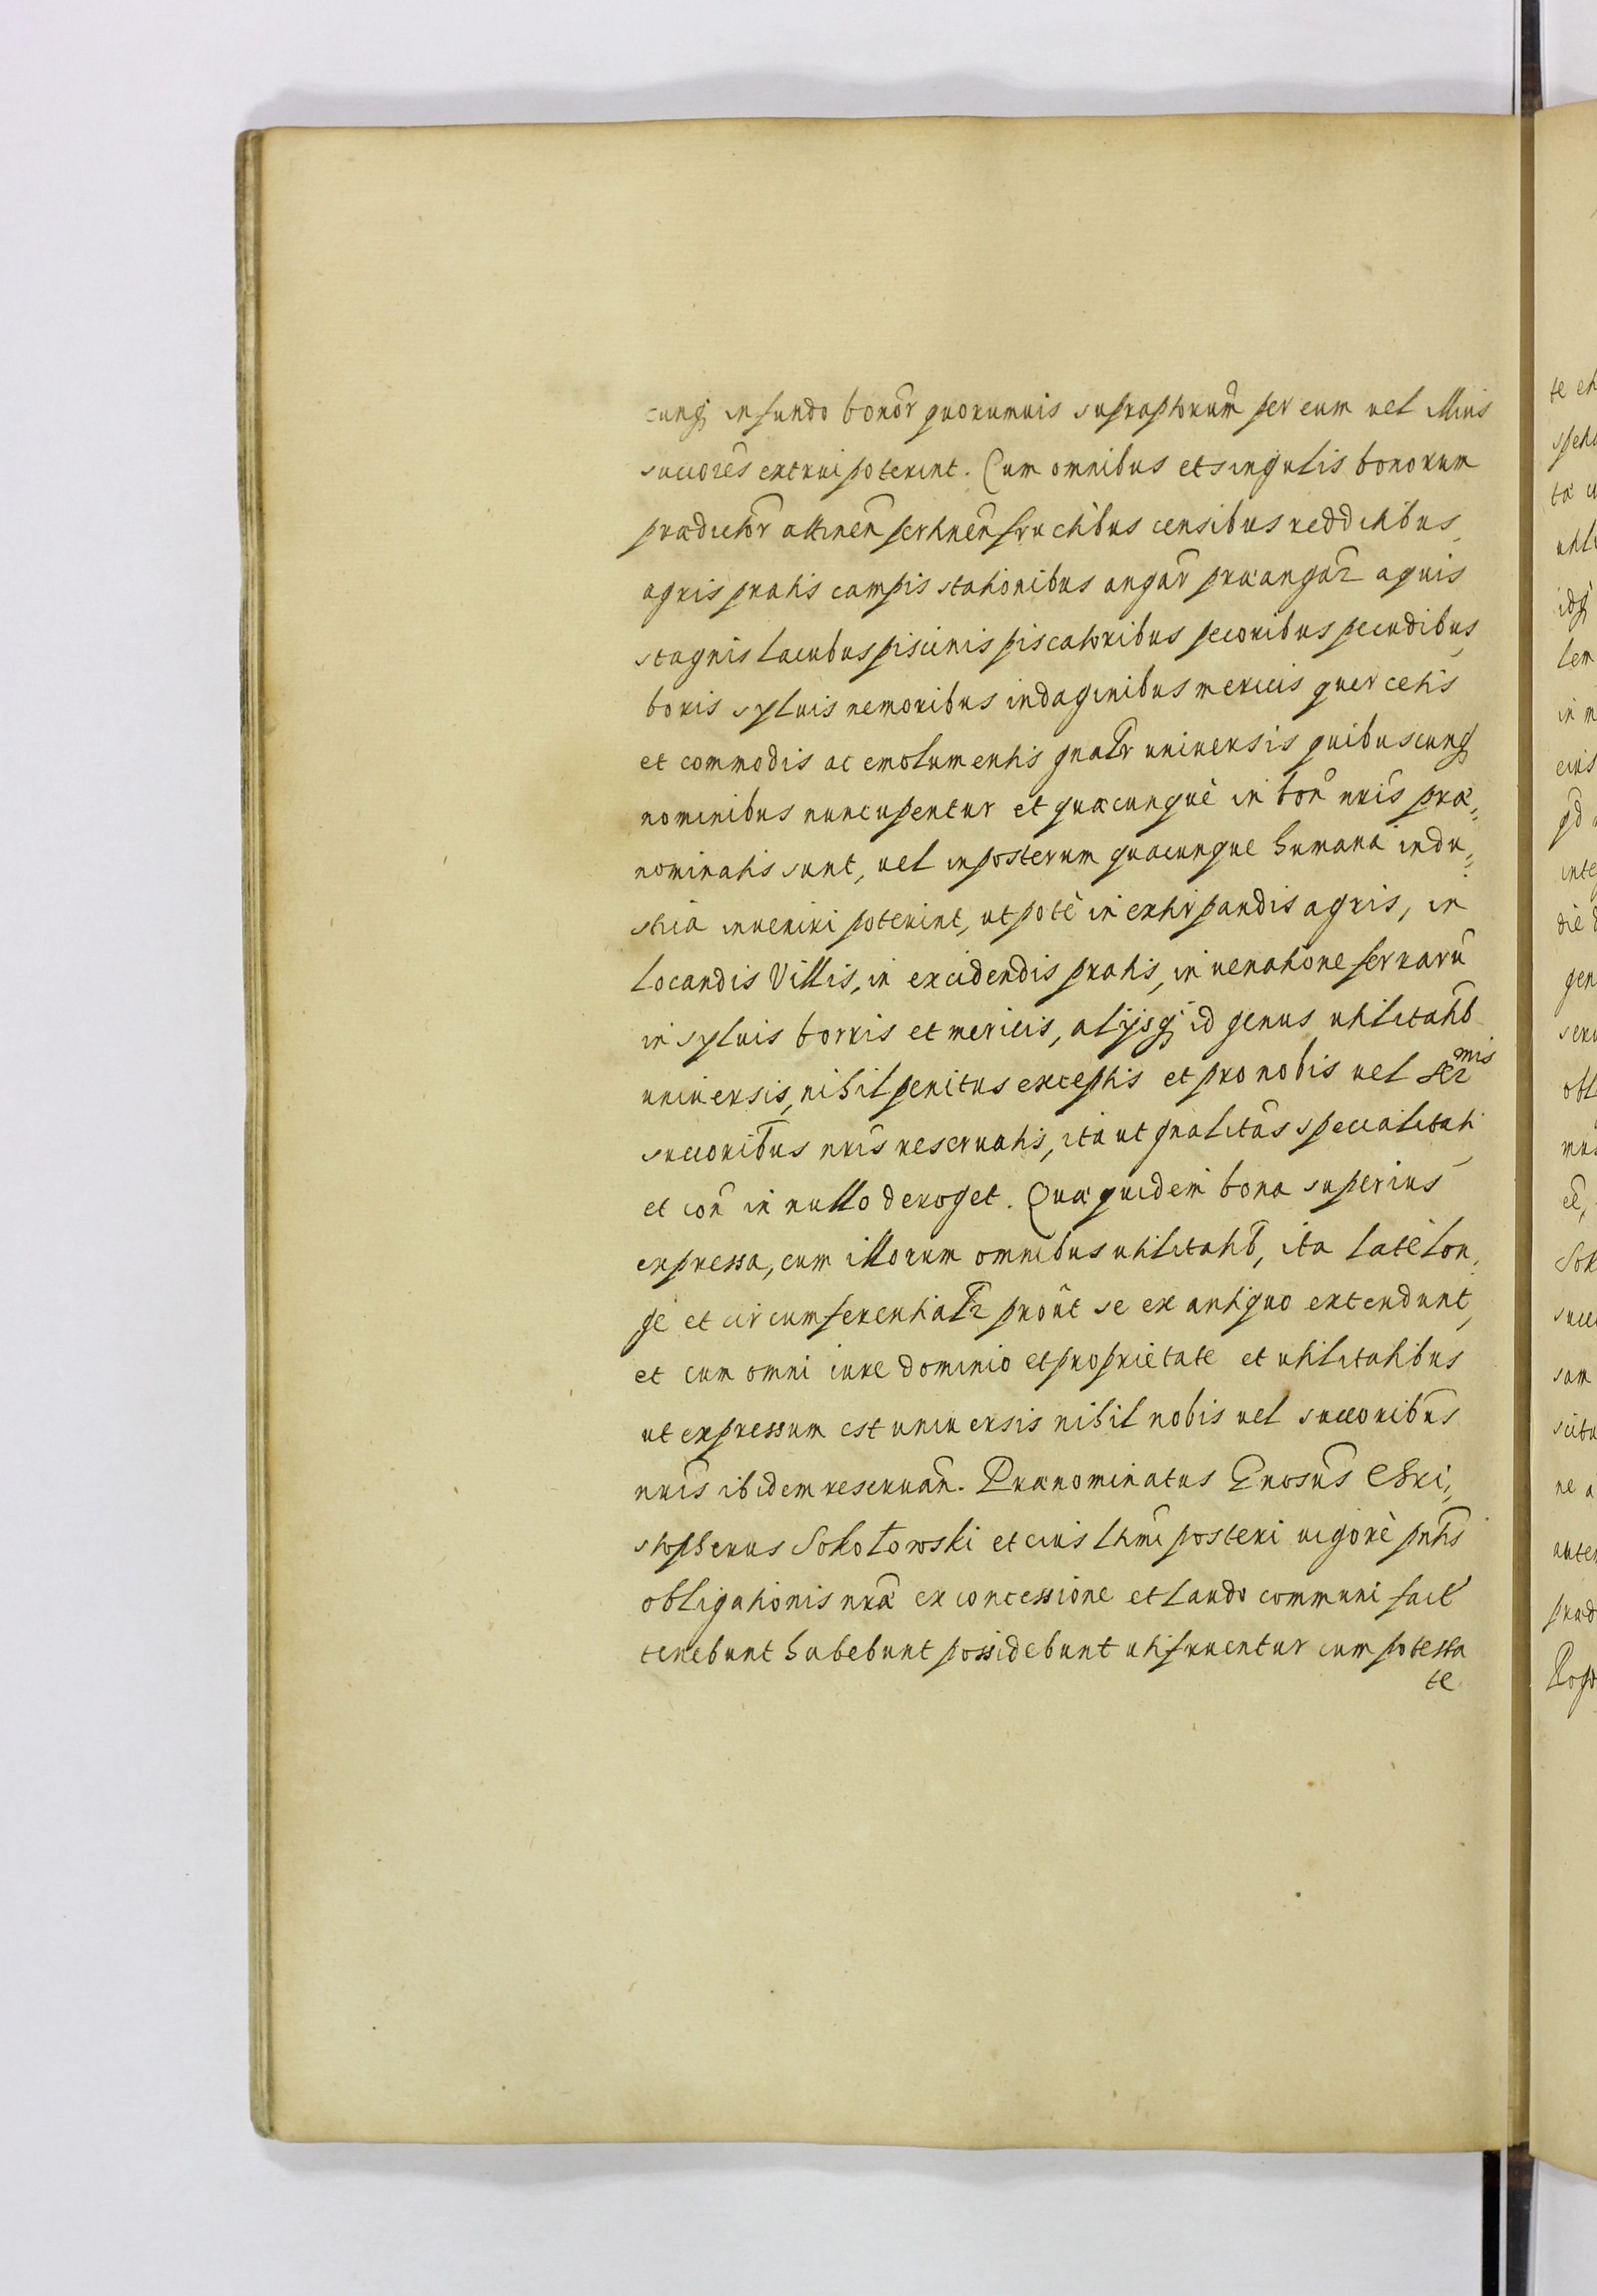 cunq; in fundo bonor̃ quorumuis supraptorum̃ per eum uel illius
succores̃ extrui poterint. Cum omnibus et singulis bonorum
prædictor̃ attinen̄ pertinen̄ fructibus censibus redditibus,
agris pratis campis stationibus angar̃ præangar̃ aquis
stagnis lacubus piscinis piscatoribus pecoribus pecudibus,
boris syluis nemoribus indaginibus mericis quercetis
et commodis ac emolumentis gnalr̃ uniuersis quibuscunq;
nominibus nuncupentur et quæcunquè in bon̄ nr̃is præ„
nominatis sunt, uel inposterum quacunque humana indu„
stria inueniri poterint, utpotè in extirpandis agris, in
locandis Villis, in excidendis pratis, in uenatione ferrarū
in syluis borris et mericis, alijsq; id genus utilitatib̄
uniuersis, nihil penitus exceptis et pro nobis uel Ser̃mis
succoribus̃ nr̃is reseruatis, ita ut gnalitas̃ specialitati
et con̄ in nullo deroget. Quæ quidem bona superius
expressa, cum illorum omnibus utilitatib̄, ita latè lon„
gè et circumferentialr̃ proût se ex antiquo extendunt,
et cum omni iure dominio et proprietate et utilitatibus
ut expressum est uniuersis nihil nobis uel succoribus̃
nr̃is ibidem reseruan̄. Prænominatus Gnosus̃ Chri„
stopherus Sokołowski et eius lt̃mi posteri uigorè pnt̃is
obligationis nr̃æ ex concessione et laudo communi fact̃
tenebunt habebunt possidebunt utifruentur cum potesta
te